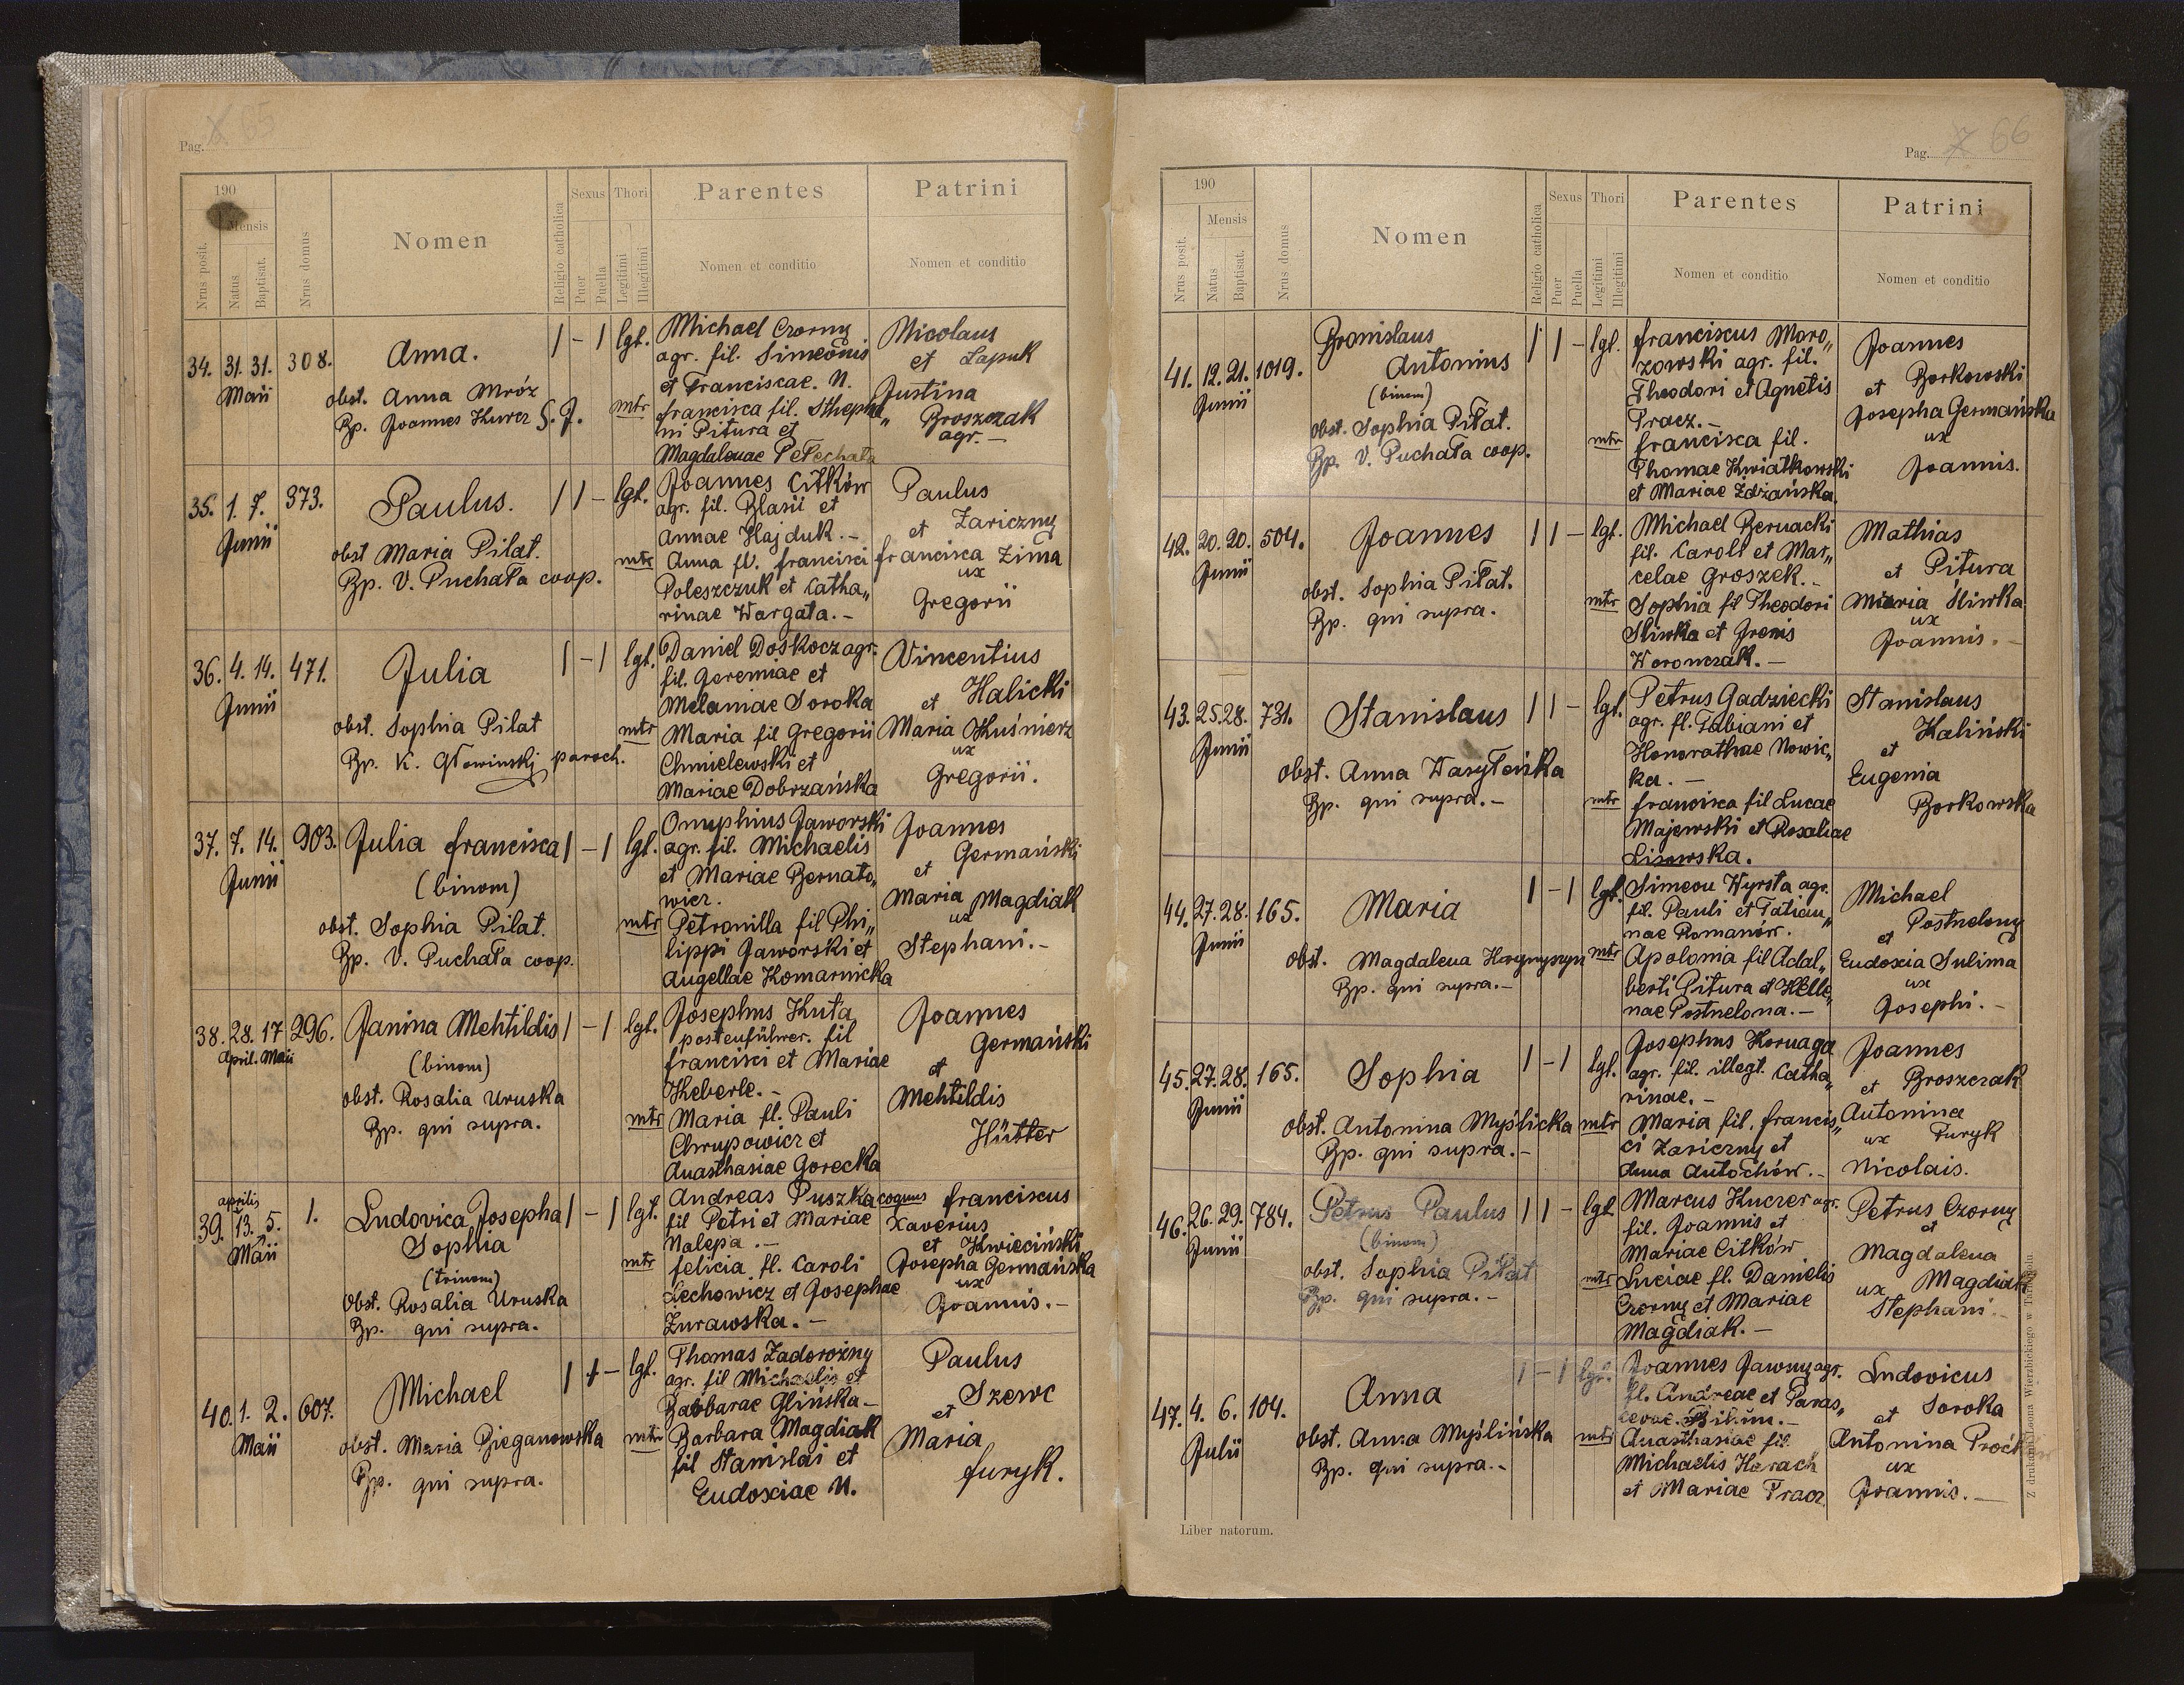 Pag. 65
190
Mensis
Nrus posit.
Natus
Baptisat.
Nrus domus
Nomen
Religio catholica
Sexus
Puer
Puella
Thori
Legitimi
Illegitimi
Parentes
Nomen et conditio
Patrini
Nomen et conditio
34. 31. 31. 308.
Maii
Anna.
obst. Anna Mróz
Bp. Joannes Kurcz S. J.
1 - 1 lgt.
Michael Czorny
agr. fil. Simeonis
et Franciscae. N.
mtr francisca fil. Stepha„
ni Pitura et
Magdalenae Pełechata
Nicolaus
et Łapuk
Justina
Broszczak
agr. -
35. 1. 7. 373.
Junii
Paulus.
obst Maria Pilat.
Bp. V. Puchała coop.
1 1 - lgt.
Joannes Citków
agr. fil. Blasii et
Annae Hajduk. -
mtr Anna fl. francisci
Poleszczuk et Catha„
rinae Wargata. -
Paulus
et Zariczny
francisca Zima
ux
Gregorii
36. 4. 14. 471.
Junii
Julia
obst. Sophia Pilat
Bp. K. Głowinski paroch.
1 - 1 lgt.
Daniel Doskocz agr.
fil. Jeremiae et
Melaniae Soroka
mtr Maria fil Gregorii
Chmielewski et
Mariae Dobrzańska
Vincentius
et Halicki
Maria Kuśnierz
ux
Gregorii.
37. 7. 14. 903.
Junii
Julia francisca
(binom)
obst. Sophia Pilat.
Bp. V. Puchała coop.
1 - 1 lgt.
Onuphius Jaworski
agr. fil. Michaelis
et Mariae Bernato„
wicz.
mtr Petronilla fil Phi„
lippi Jaworski et
Angellae Komarnicka
Joannes
et Germański
Maria Magdiak
ux
Stephani. -
38. 28. 17 296.
April. Maii
Janina Mehtildis
(binom)
obst. Rosalia Uruska
Bp. qui supra.
1 - 1 lgt.
Josephus Kuta
postenführer. fil
francisci et Mariae
Keberle. -
mtr Maria fl. Pauli
Chrupowicz et
Anasthasiae Gorecka
Joannes
Germański
et
Mehtildis
Hütter
aprilis
39. 13. 5. 1.
Maii
Ludovica Josepha
Sophia
(trinom)
Obst. Rosalia Uruska
Bp. qui supra.
1 - 1 lgt.
Andreas Puszka coquus
fil Petri et Mariae
Nalepa. -
mtr felicia fl. Caroli
Lechowicz et Josephae
Żurawska. -
franciscus
Xaverius
et Kwieciński
Josepha Germańska
ux
Joannis. -
40. 1. 2. 607.
Maii
Michael
obst. Maria Bieganowska
Bp. qui supra.
1 1 - lgt.
Thomas Zadorożny
agr. fil Michaelis et
Barbarae Glińska -
mtr Barbara Magdiak
fil Stanislai et
Eudoxiae N.
Paulus
Szewc
et
Maria
furyk.
Pag. 66
190
Mensis
Nrus posit.
Natus
Baptisat.
Nrus domus
Nomen
Religio catholica
Sexus
Puer
Puella
Thori
Legitimi
Illegitimi
Parentes
Nomen et conditio
Patrini
Nomen et conditio
41. 12. 21. 1019.
Junii
Bronislaus
Antonius
(binom)
obst. Sophia Piłat.
Bp. V. Puchała coop.
1 1 - lgt.
franciscus Moro„
zowski agr. fil.
Theodori et Agnetis
Tracz. -
mtr francisca fil.
Thomae Kwiatkowski
et Mariae Zdżańska.
Joannes
et Borkowski
Josepha Germańska
ux
Joannis.
42. 20. 20. 504.
Junii
Joannes
obst. Sophia Piłat.
Bp. qui supra.
1 1 - lgt.
Michael Bernacki
fil. Caroli et Mar„
celae Groszek. -
mtr Sophia fil Theodori
Sliwka et Irenis
Woronczak. -
Mathias
et Pitura
Maria Śliwka
ux
Joannis. -
43. 25. 28. 731.
Junii
Stanislaus
obst. Anna Wasyłeńka
Bp. qui supra. -
1 1 - lgt.
Petrus Gadziecki
agr. fl. Fabiani et
Honorathae Nowic„
ka. -
mtr francisca fil Lucae
Majewski et Rosaliae
Lisowska.
Stanislaus
Kaliński
et
Eugenia
Borkowska
44. 27. 28. 165.
Junii
Maria
obst. Magdalena
Bp. qui supra. -
1 - 1 lgt.
Simeon Wyrsta agr.
fil. Pauli et Tatian„
nae Romanów.
mtr Apolonia fil Adal„
berti Pitura et Helle„
nae Postnelona. -
Michael
et Postnelony
Eudoxia Sulima
ux
Josephi. -
45. 27. 28. 165.
Junii
Sophia
obst. Antonina Myślicka
Bp. qui supra. -
1 - 1 lgt.
Josephus Kornaga
agr. fil. illegt. Catha„
rinae. -
mtr Maria fil. francis„
ci Zariczny et
Anna Antochów. -
Joannes
et Broszczak
Antonina
ux Furyk
Nicolais.
46. 26. 29. 784.
Junii
Petrus Paulus
(binom)
obst. Sophia Piłat
Bp. qui supra. -
1 1 - lgt
Marcus Kuczer agr.
fil. Joannis et
Mariae Citków
mtr Luciae fl. Danielis
Czorny et Mariae
Magdiak. -
Petrus Czorny
et
Magdalena
ux Magdiak
Stephani -
47. 4. 6. 104.
Julii
Anna
obst. Anna Myślińska
Bp. qui supra. -
1 - 1 lgt.
Joannes Jawny agr.
fl. Andreae et Paras„
cevae. -
mtr Anasthasiae fil
Michaelis Harach
et Mariae Tracz
Ludovicus
et Soroka
Antonina Proć
ux
Joannis. -
Liber natorum.
Z drukarni Leona Wierzbickiego w Tarnopolu